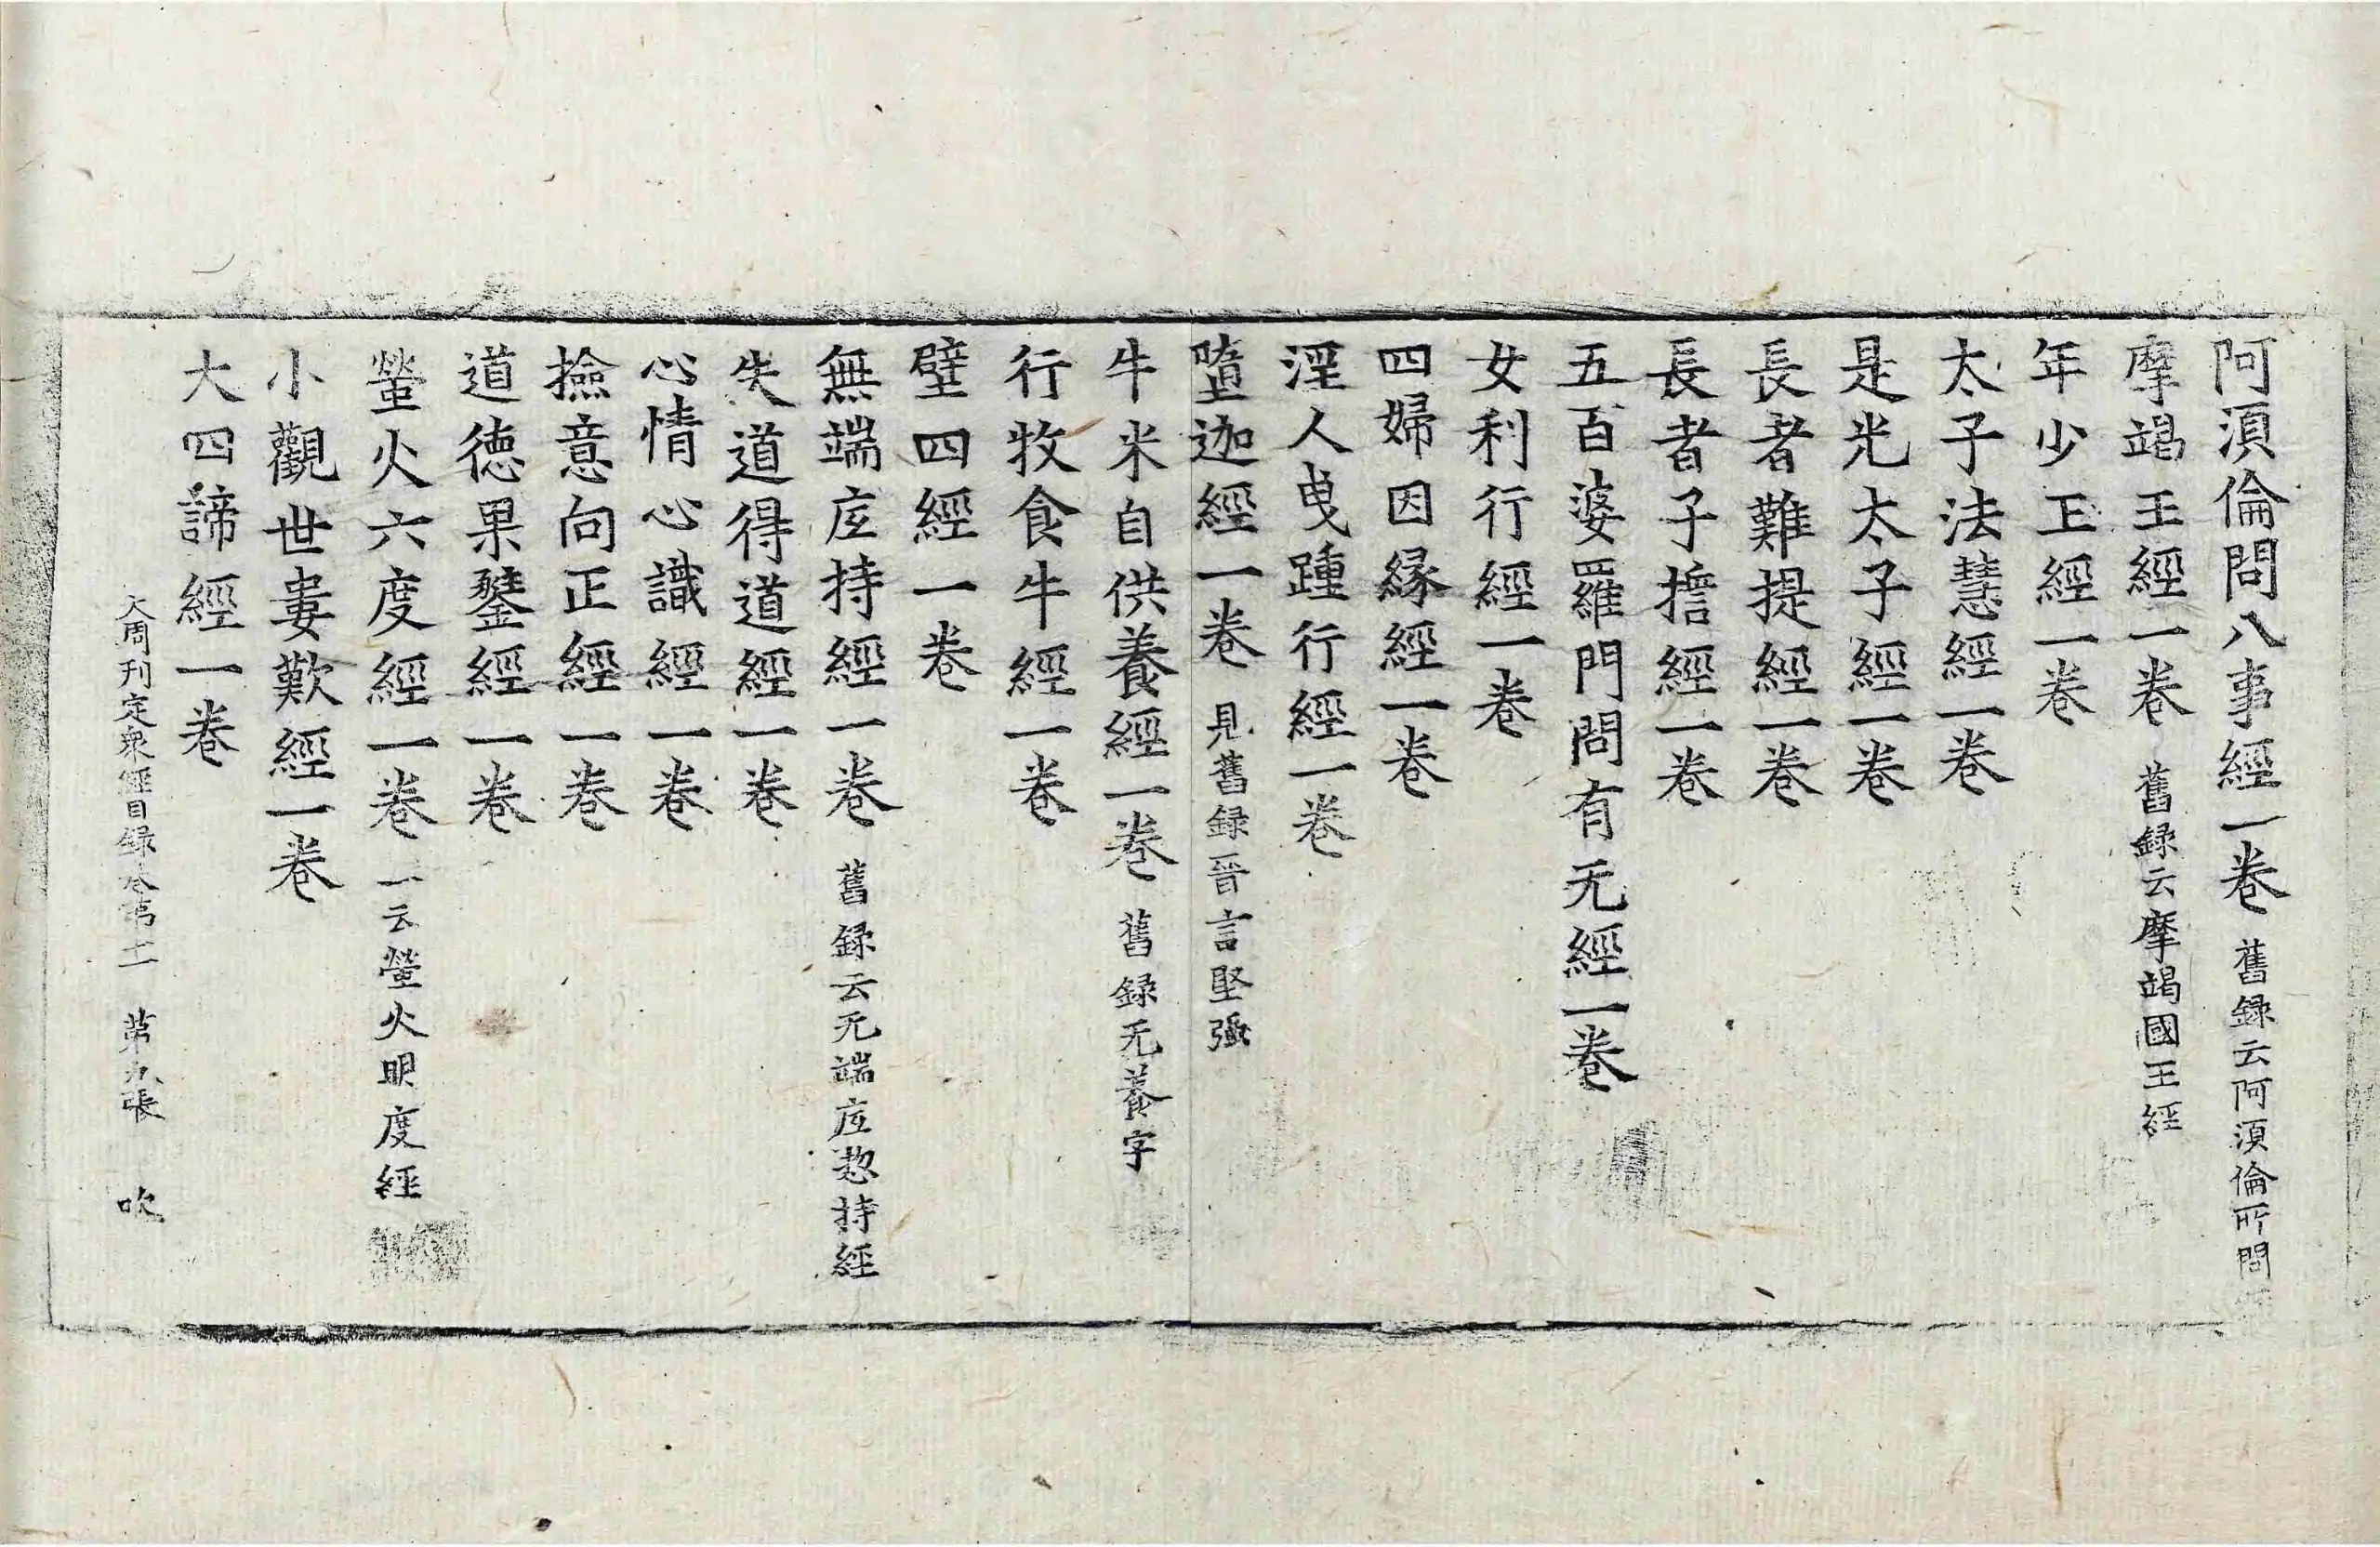 阿湏倫問八事經一卷 舊録云阿湏倫所問
摩竭王經一卷 舊録云摩竭國王經
年少王經一卷
太子法慧經一卷
是光太子經一卷
長者難提經一卷
長者子擔經一卷
五百婆羅門問有无經一卷
女利行經一卷
四婦因縁經一卷
淫人曳踵行經一卷
墮迦經一卷 見舊録晉言堅強
牛米自供養經一卷 舊録无養字
行牧食牛經一卷
壁四經一卷
無端庢持經一卷 舊録云无端庢惣持經
失道得道經一卷
心情心識經一卷
撿意向正經一卷
道德果鐾經一卷
螢火六度經一卷 一云螢火眀度經
小觀世婁歎經一卷
大四諦經一卷
大周刊定衆經目録卷第十一 第九張 吹